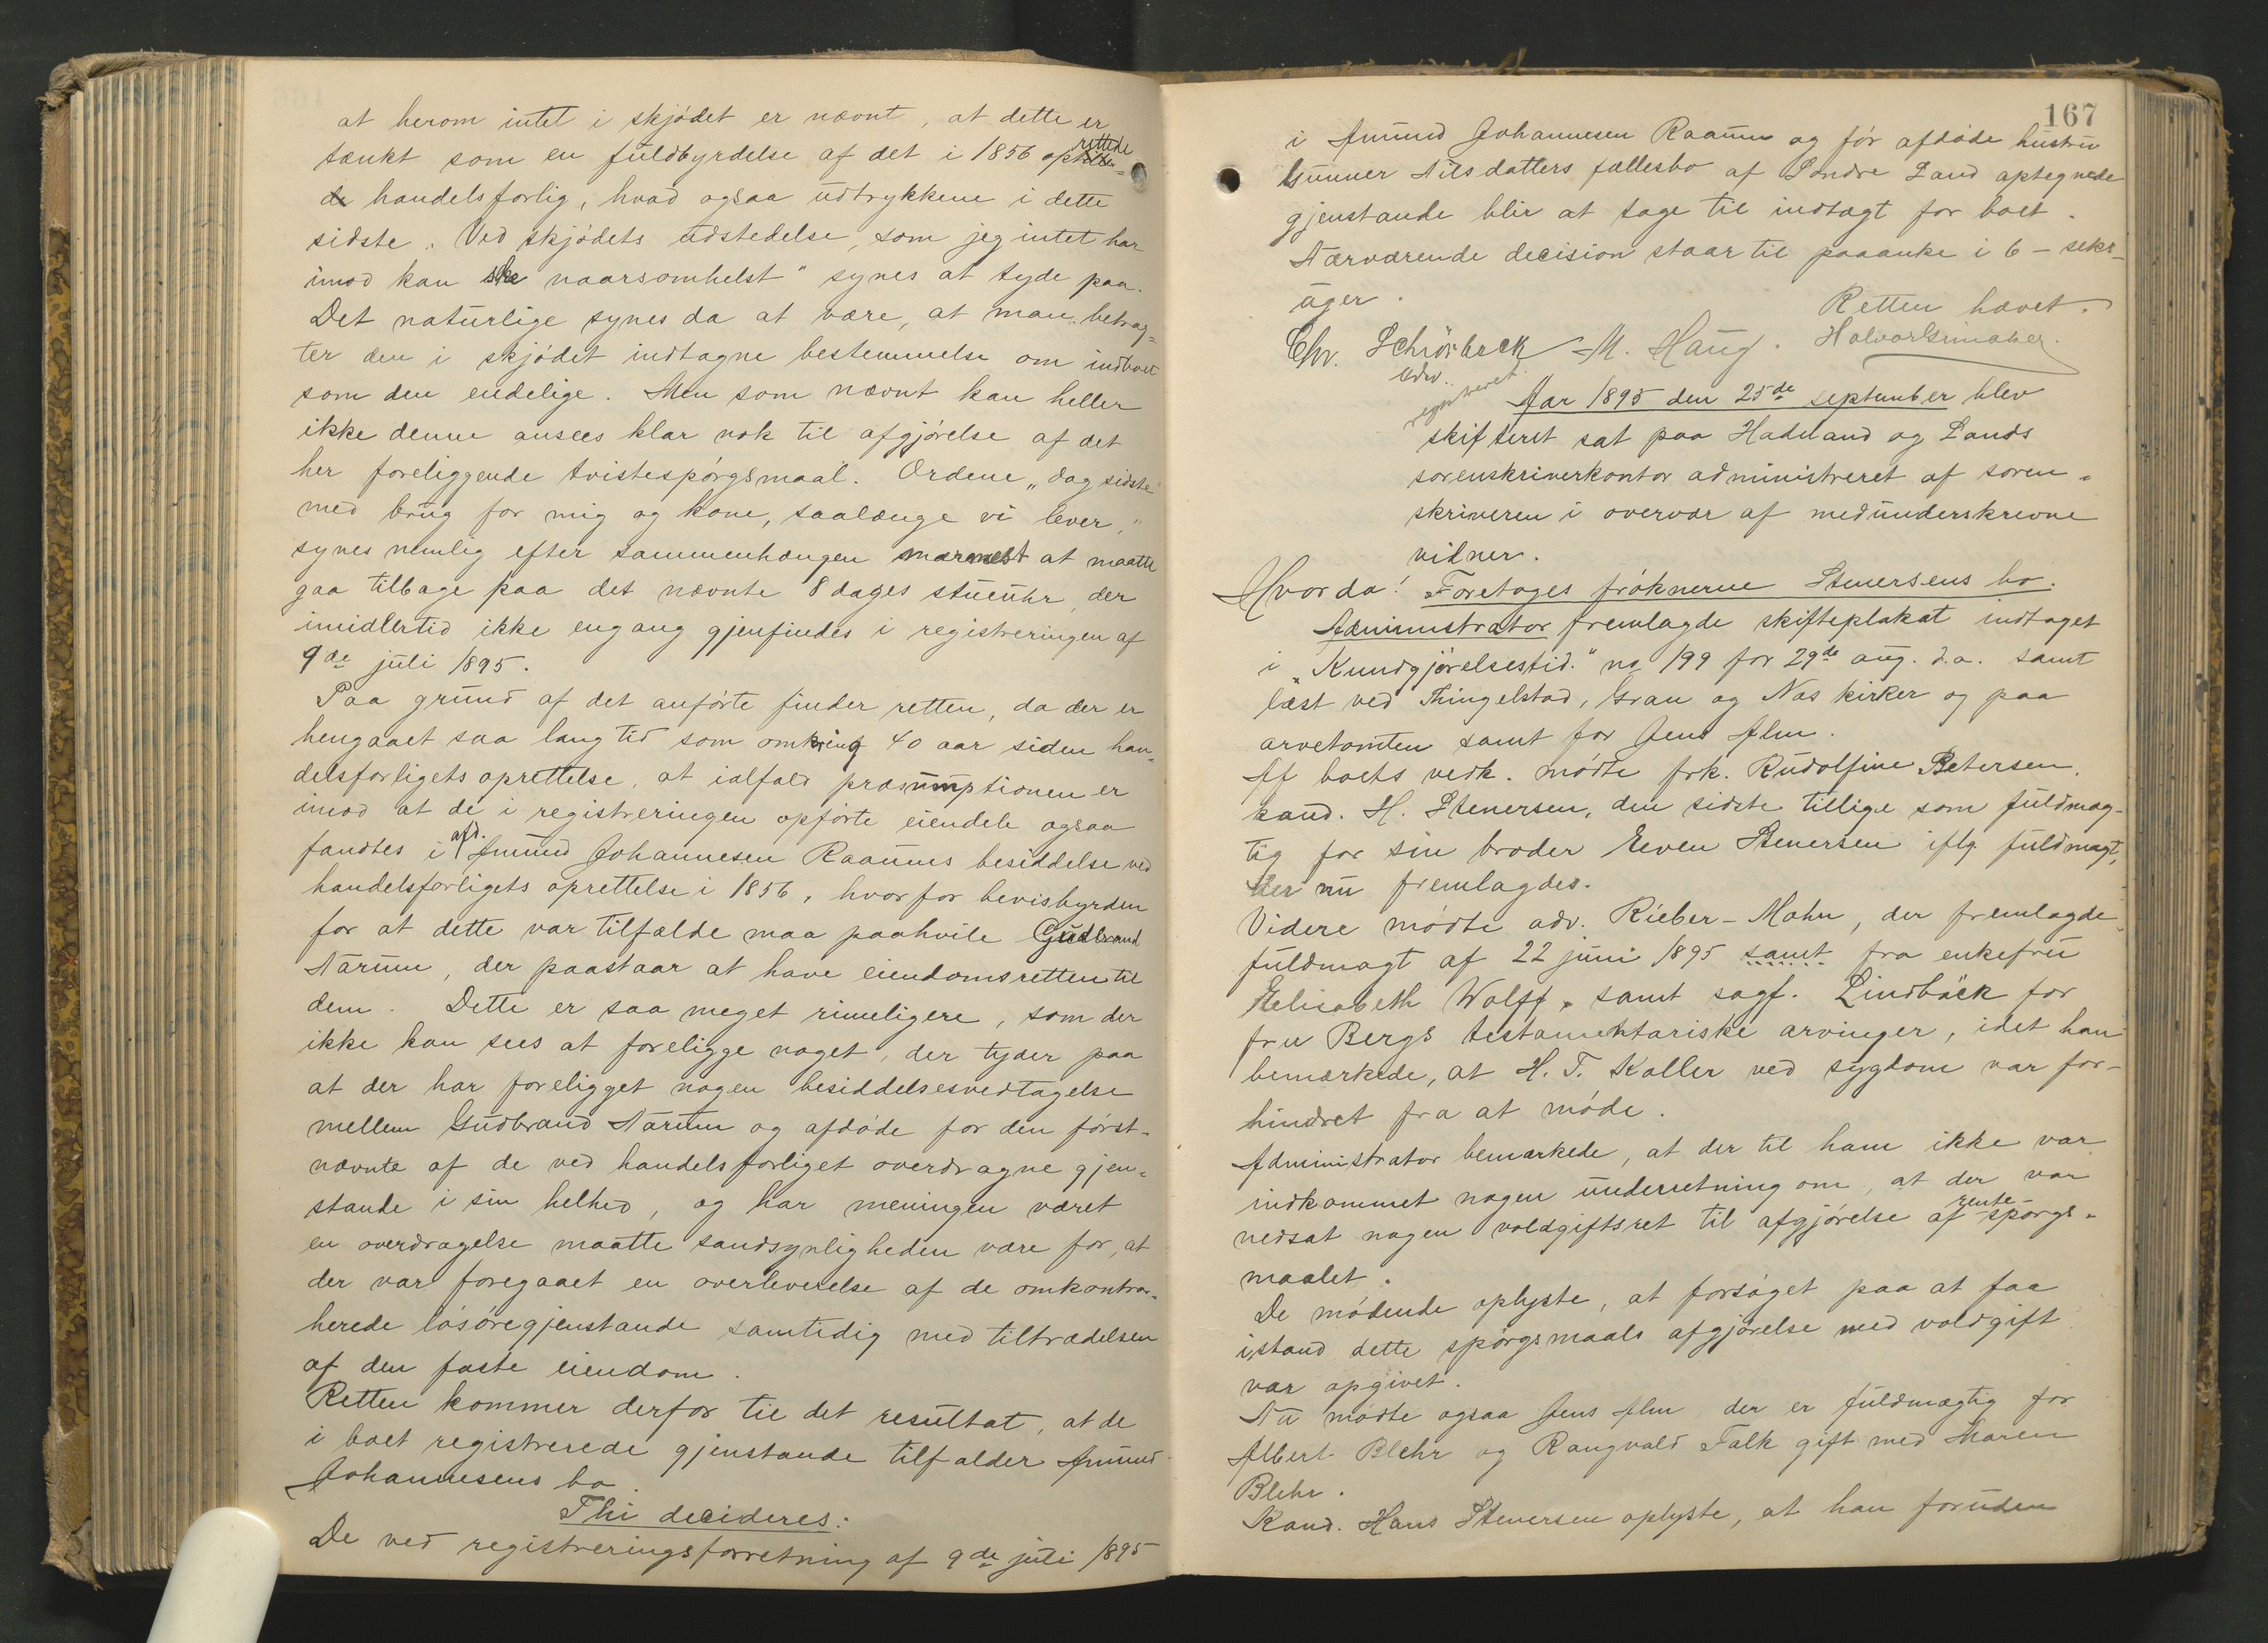 at herom intet i skjødet er nævnt, at dette er
tænkt som en fuldbyrdelse af det i 1856 oprettede
handelsforlig, hvad ogsaa udtrykkene i dette
sidste: "Ved skjødets udstedelse, som jeg intet har
imod kan ske naarsomhelst" synes at tyde paa.
Det naturlige synes da at være, at man betrag-
ter den i skjødet indtagne bestemmelse om indboet
som den endelige. Men som nævnt kan heller
ikke denne ansees klar nok til afgjørelse af det
her foreliggende tvistespørgsmaal. Ordene „dog sidste
med brug for mig og kone, saalænge vi lever,"
synes nemlig efter sammenhængen nærmest at maatte
gaa tilbage paa det nævnte 8 dages stueuhr, der
imidlertid ikke engang gjenfindes i registreringen af
9de juli 1895.
Paa grund af det anførte finder retten, da der er
hengaaet saa lang tid som omkring 40 aar siden han-
delsforligets oprettelse, at ialfald præsumptionen er
imod at de i registreringen opførte eiendele ogsaa
fandtes i afd. Amund Johannesen Raaums besiddelse ved
handelsforligets oprettelse i 1856, hvorfor bevisbyrden
for at dette var tilfælde maa paahvile Gudbrand
Narum, der paastaar at have eiendomsretten til
dem. Dette er saa meget rimeligere, som der
ikke kan sees at foreligge noget, der tyder paa
at der har foreligget nogen besiddelsesvedtagelse
mellem Gudbrand Narum og afdøde for den først-
nævnte af de ved handelsforliget overdragne gjen-
stande i sin helhed, og har meningen været
en overdragelse maatte sandsynligheden være for, at
der var foregaaet en overleverelse af de omkontra-
herede løsøregjenstande samtidig med tiltrædelsen
af den faste eiendom.
Retten kommer derfor til det resultat, at de
i boet registrerede gjenstande tilfalder Amund
Johannesens bo.
Thi decideres:
De ved registreringsforretning af 9de juli 1895
167
i Amund Johannesen Raaum og før afdøde hustru
Gunner Nilsdatters fællesbo af Søndre Land optegnede
gjenstande blir at tage til indtægt for boet.
Nærværende decision staar til paaanke i 6 - seks -
uger.
Retten hævet.
Chr. Schiørbeck M. Haug. Halvor Grinaker.
Aar 1895 den 25de september blev
skifteret sat paa Hadeland og Lands
sorenskriverkontor administreret af soren-
skriveren i overvær af medunderskrevne
vidner.
Hvorda: Foretoges frøknerne Stenersens bo.
Administrator fremlagde skifteplakat indtaget
i „Kundgjørelsestid." no 199 for 29de aug. d.a. samt
læst ved Thingelstad, Gran og Næs kirker og paa
arvetomten samt for Jens Alm.
Af boets vedk. mødte frk. Rudolfine Petersen,
kand. H. Stenersen, den sidste tillige som fuldmæg-
tig for sin broder Even Stenersen iflg fuldmagt,
der nu fremlagdes.
Videre mødte adv. Rieber-Mohn, der fremlagde
fuldmagt af 22 juni 1895 samt fra enkefru
Elisabeth Wolff, samt sagf. Lindbäck for
fru Bergs testamentariske arvinger, idet han
bemærkede, at H. T. Koller ved sygdom var for-
hindret fra at møde.
Administrator bemærkede, at der til ham ikke var
indkommet nogen underretning om, at der var
nedsat nogen voldgiftsret til afgjørelse af rente-spørgs-
maalet.
De mødende oplyste, at forsøget paa at faa
istand dette spørgsmaals afgjørelse med voldgift
var opgivet.
Nu mødte ogsaa Jens Alm der er fuldmægtig for
Albert Blehr og Rangvald Falk gift med Maren
Blehr.
Kand. Hans Stenersen oplyste, at han foruden